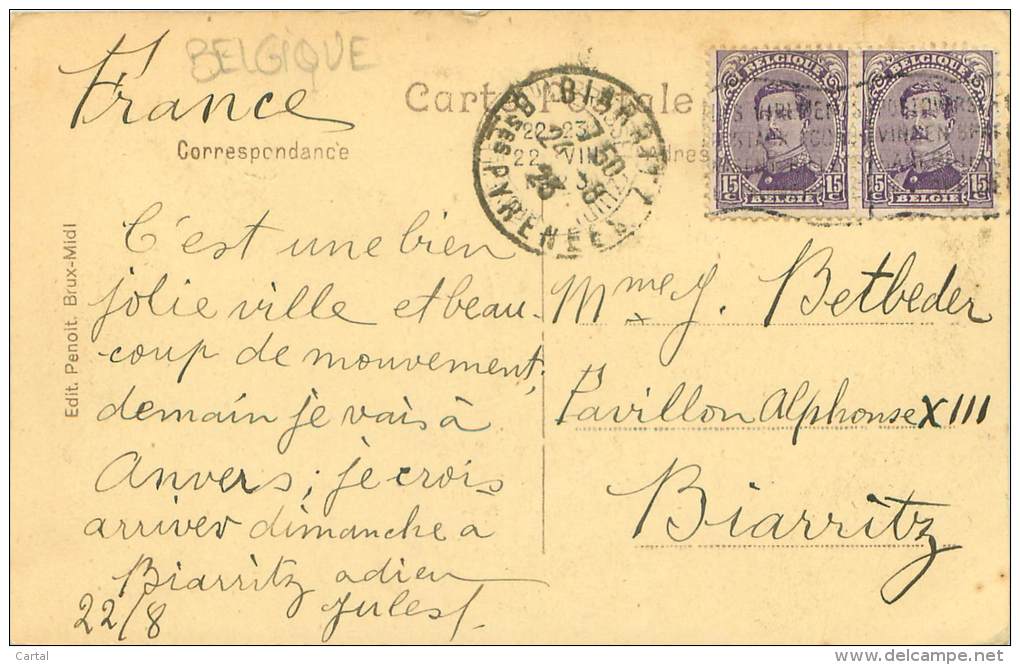 France
BELGIQUE
Carte Postale
Correspondance
BELGIQUE BELGIQUE
15 15 15 15
BELGIE BELGIE
BIARRITZ
Bses PYRENEES
Edit. Penoit. Brux-Midi
C'est une bien
jolie ville et beau-
coup de mouvement,
demain je vais à
Anvers; je crois
arriver dimanche a
Biarritz adieu
Jules
22/8
Mme J. Betbeder
Pavillon Alphonse XIII
Biarritz
Cartal
© www.delcampe.net